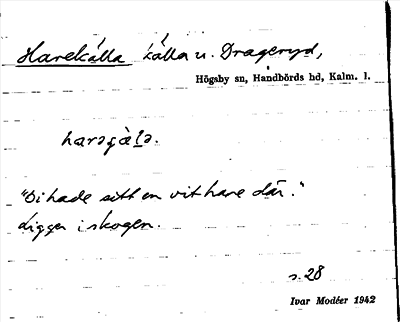 Harekälla källa u. Drageryd,
Högsby sn, Handbörds hd, Kalm. l.
harǝçà̀lǝ.
"Di hade sitt en vit hare där."
Ligger i skogen.
s. 28
Ivar Modéer 1942